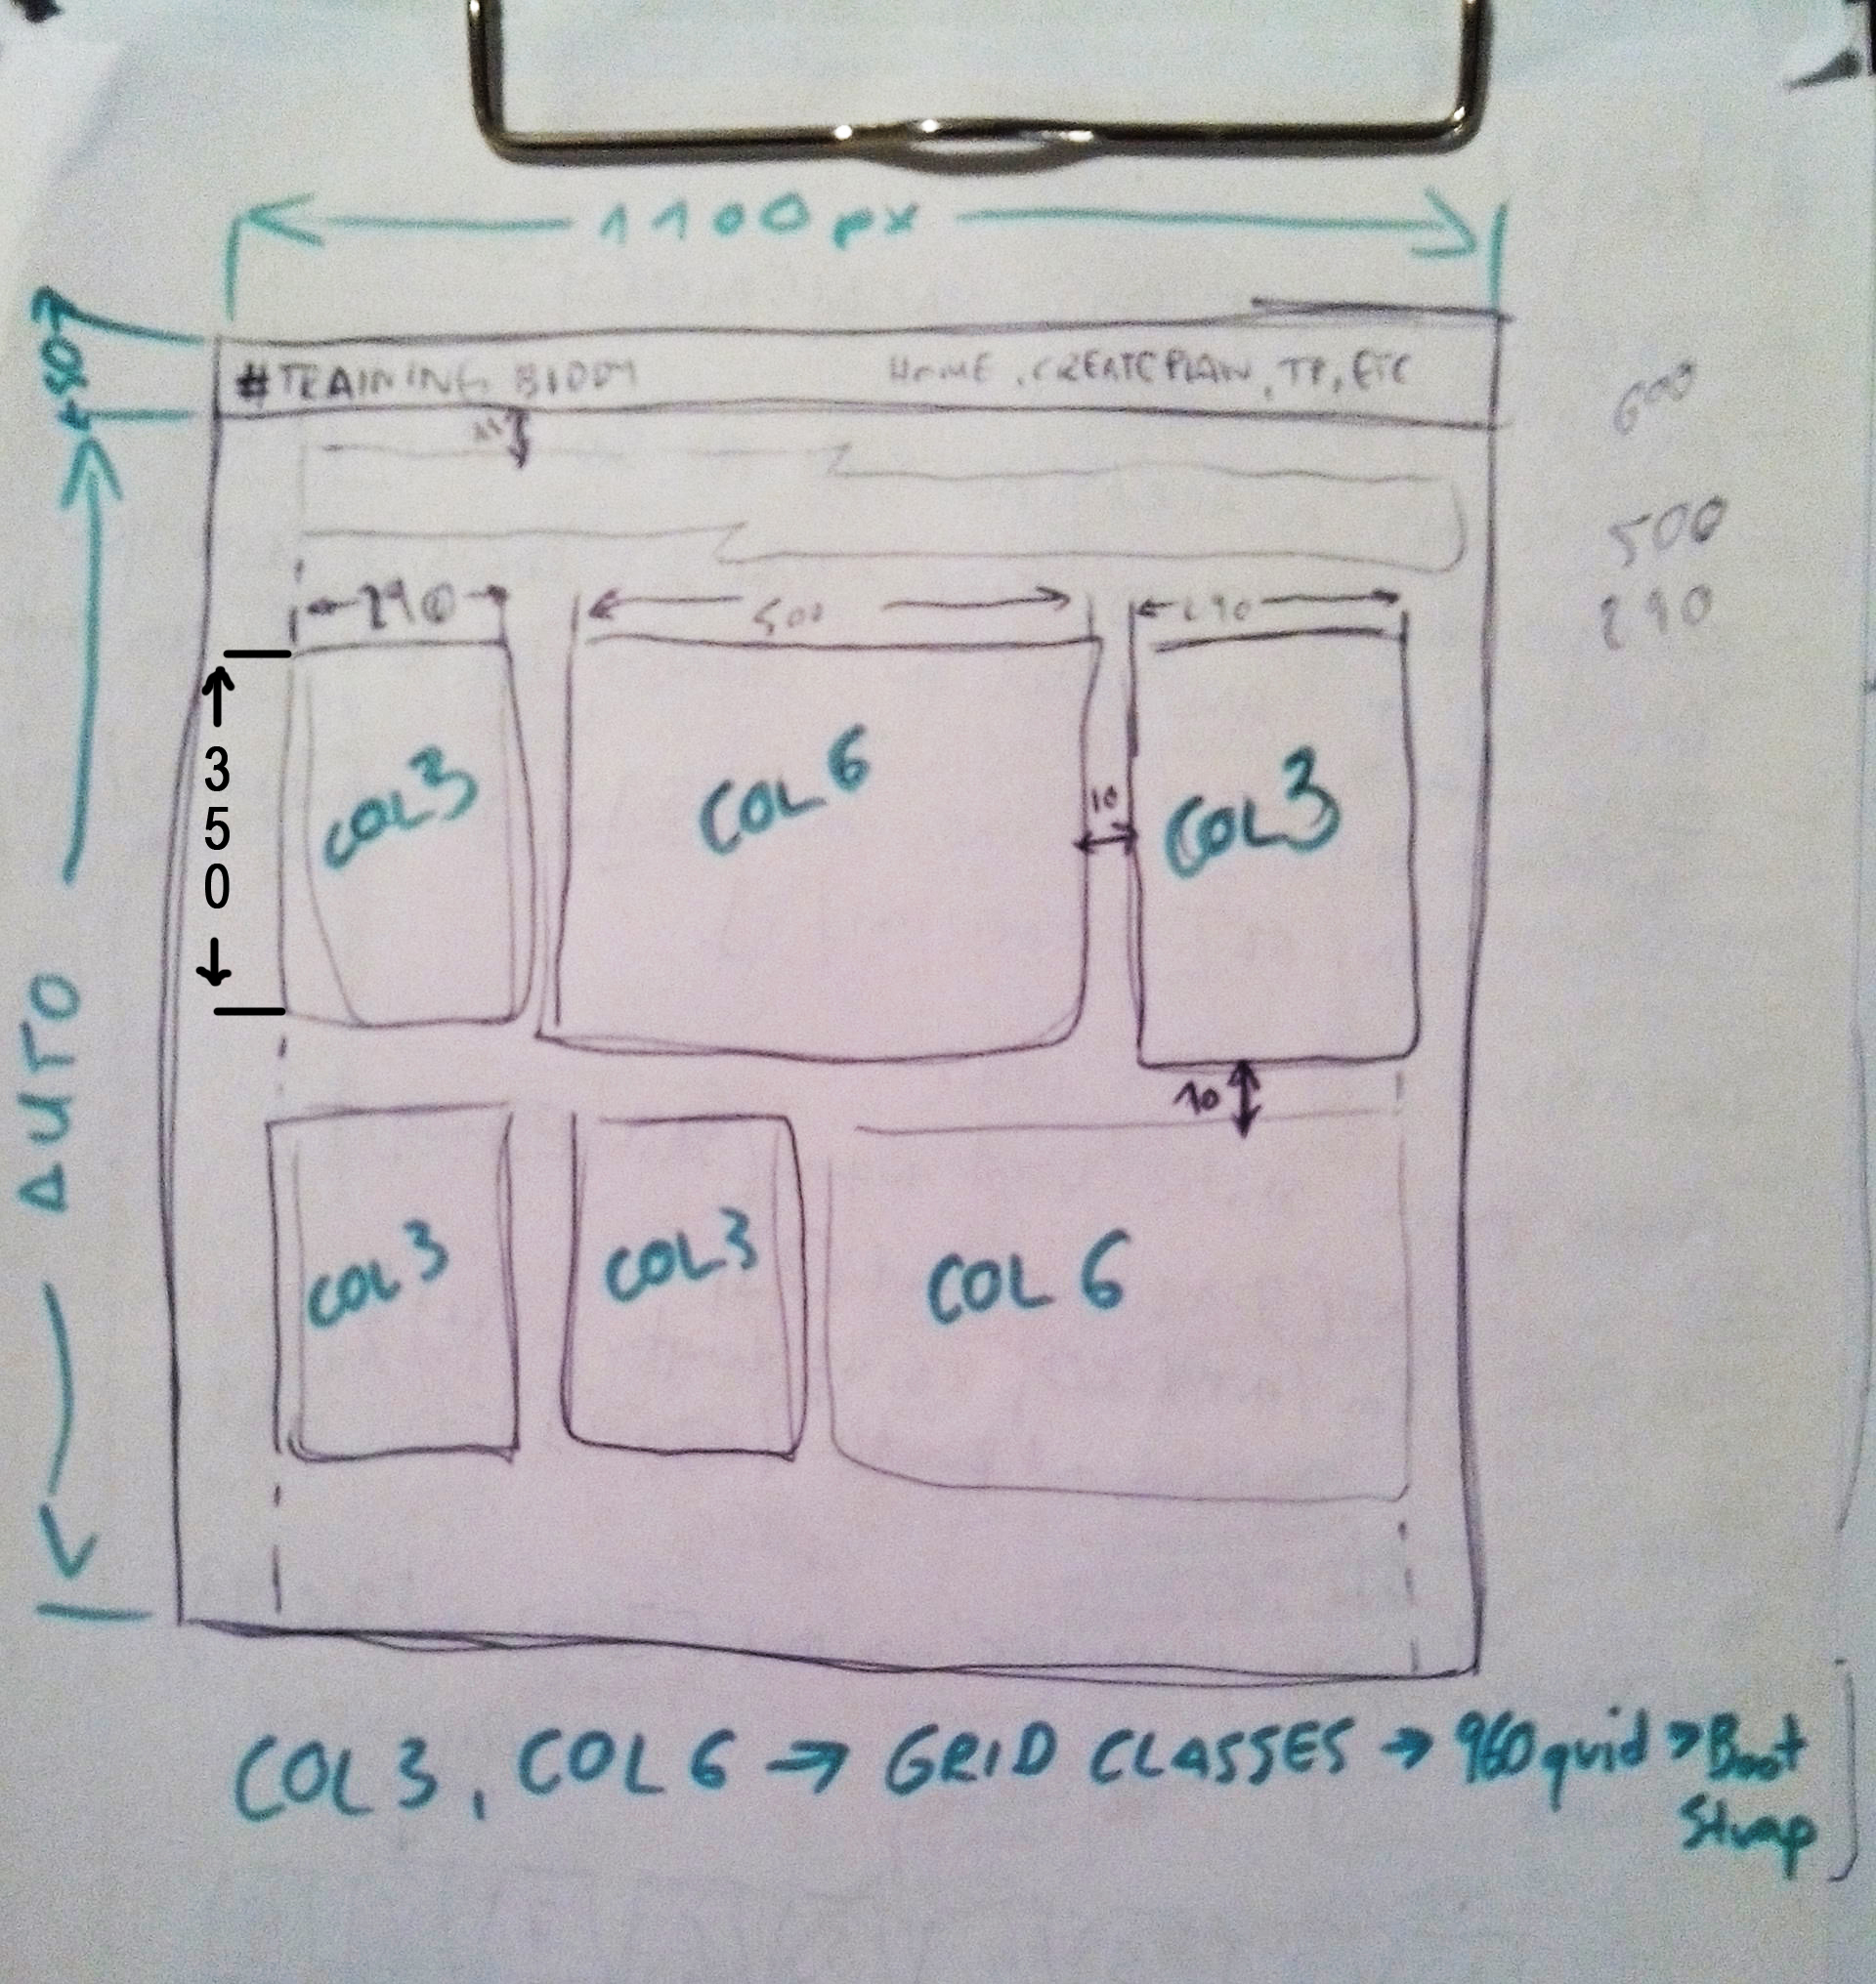 1100 px
50
#TRAINING BIDDY
HOME, CREATE PLAN, TP, ETC
600
500
290
290
500
290
350
COL 3
COL 6
10
COL 3
AUTO
10
COL 3
COL 3
COL 6
COL 3, COL 6 → GRID CLASSES → 960 grid > Boot
Strap